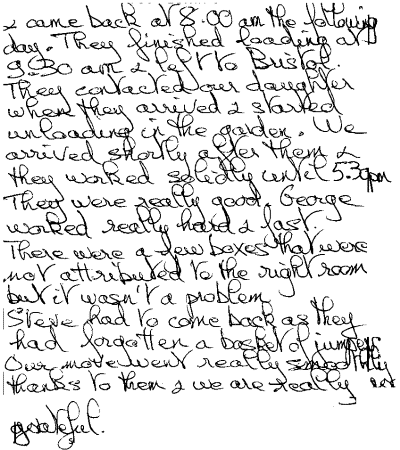 & came back at 8.00 am the following
day. They finished loading at
9.30 am & left to Bristol.
They contacted our daughter
when they arrived & started
unloading in the garden. We
arrived shortly after them &
they worked solidly until 5.30pm
They were really good. George
worked really hard & fast.
There were a few boxes that were
not attributed to the right room
but it wasn't a problem
Steve had to come back as they
had forgotten a basket of jumpers
Our move went really smoothly
thanks to them & we are really
grateful.